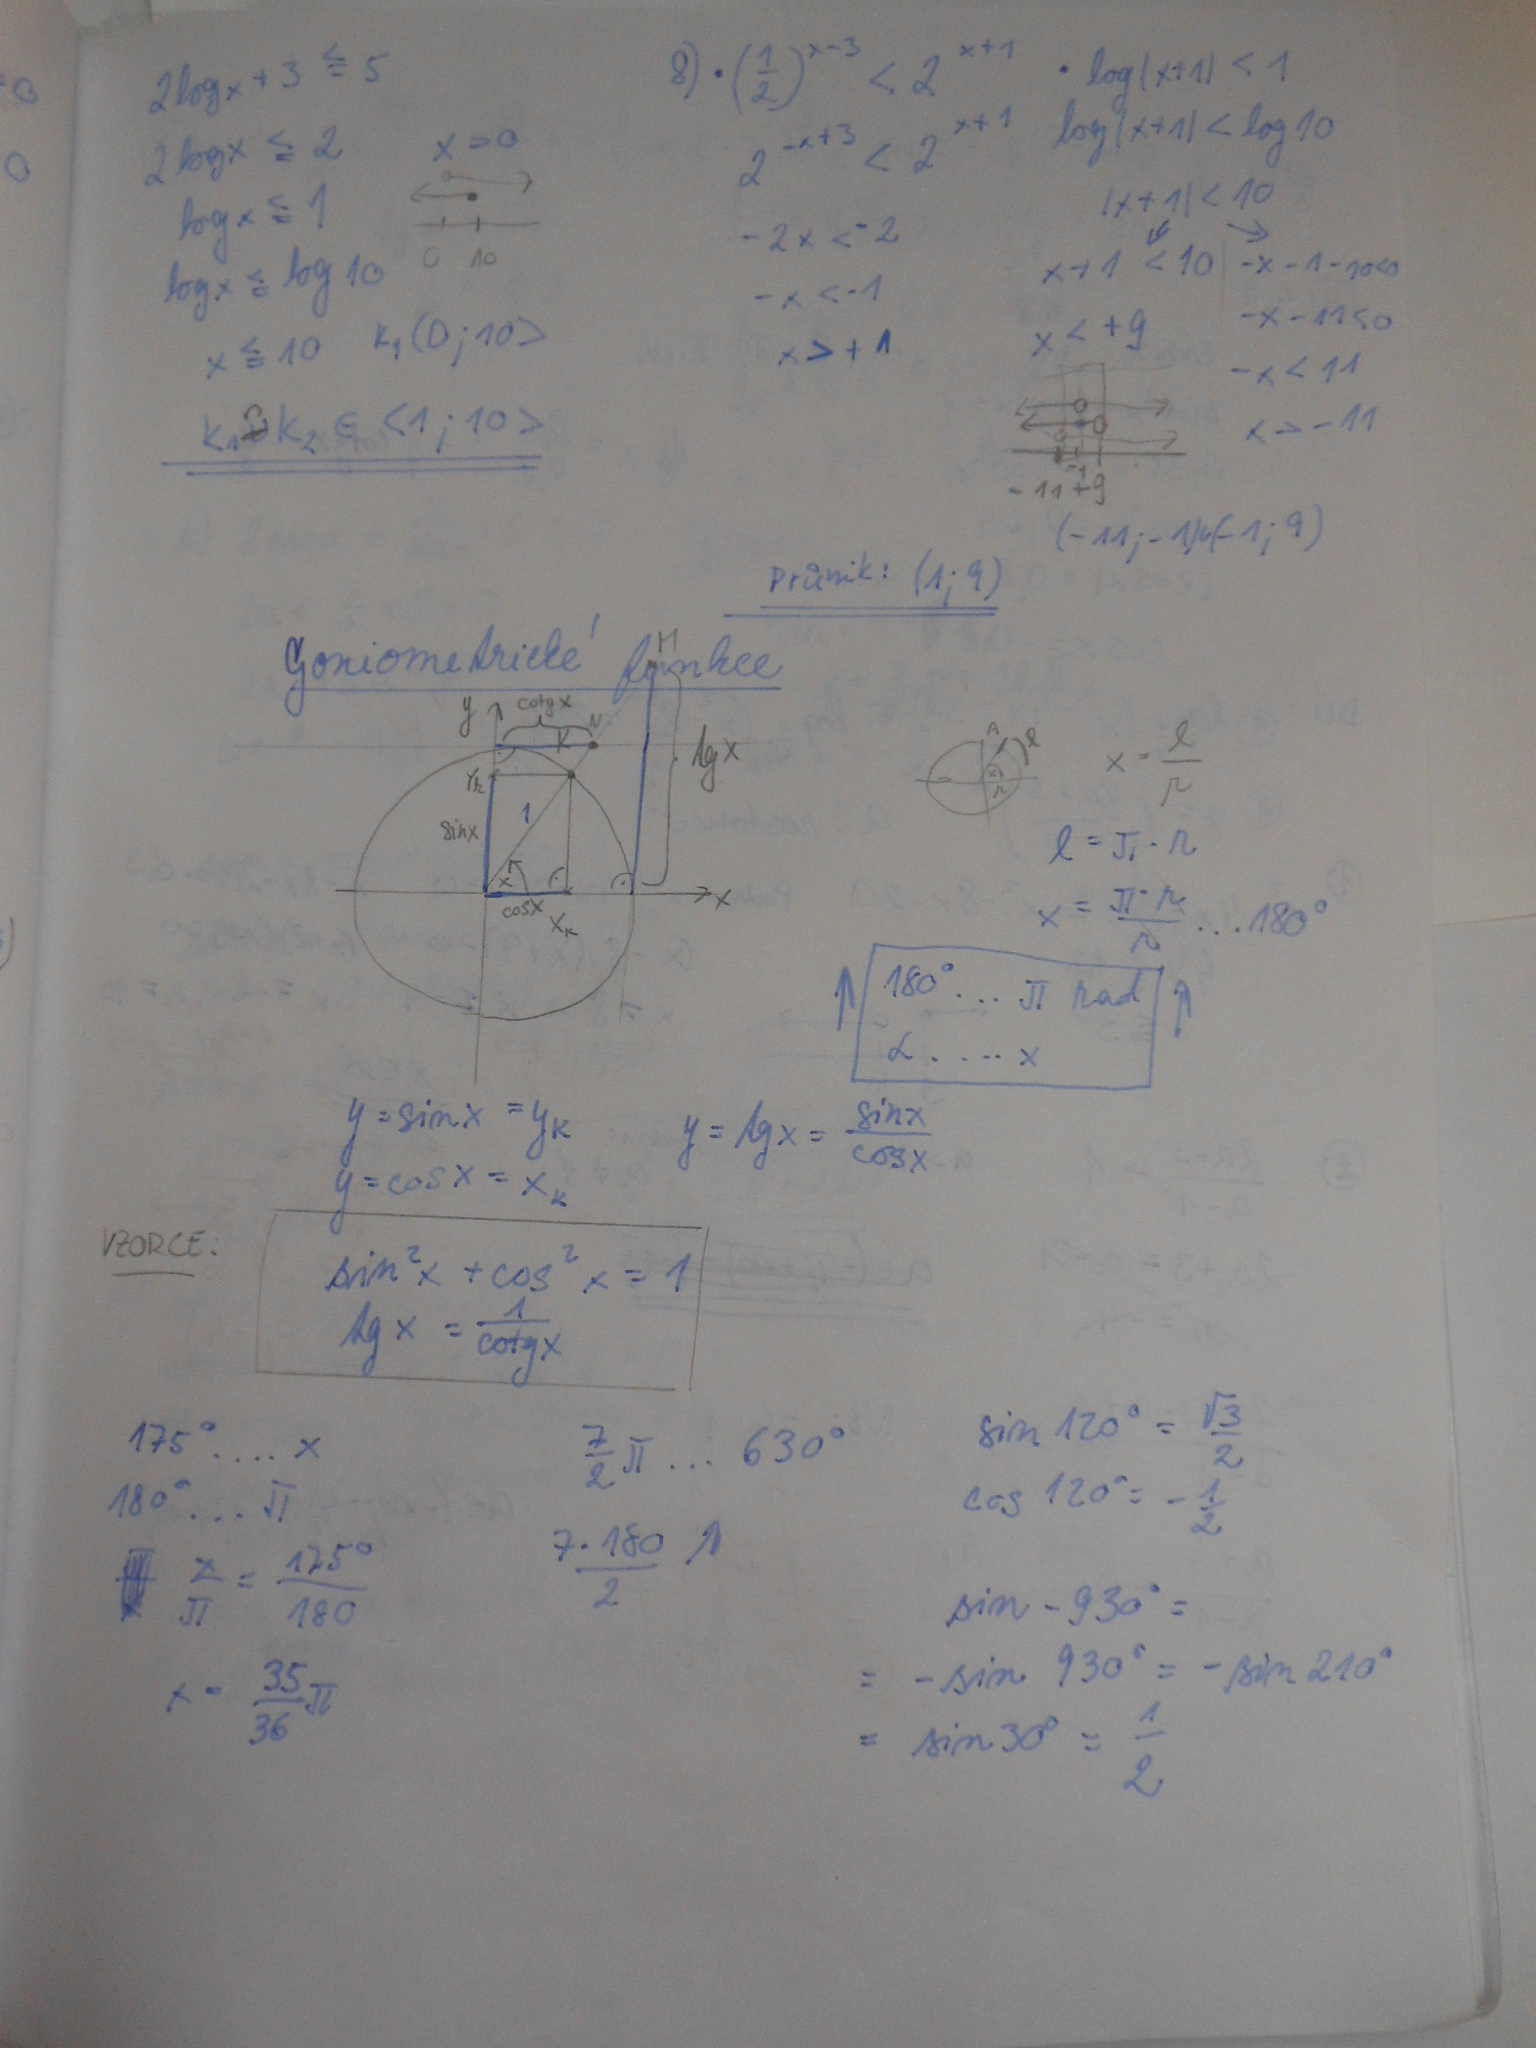 2logx + 3 ≦ 5
2logx ≦ 2
x > 0
logx ≦ 1
0 10
logx ≦ log 10
x ≦ 10 K₁(0;10>
K₁∩K₂ ∈ <1;10>
8) • (1/2)^(x-3) < 2^(x+1)
2^(-x+3) < 2^(x+1)
-2x < -2
-x < -1
x > +1
• log|x+1| < 1
log|x+1| < log10
|x+1| < 10
x+1 < 10 | -x-1-10<0
x < +9
-x-11<0
-x < 11
x > -11
-11 -1 +9
(-11;-1)∪(-1;9)
Průnik: (1;9)
Goniometrické funkce
y cotgx N M
K
tgx
sinx 1
x
cosx x
x_K
A l
x r
x = l/r
l = π·r
x = π·r/r ...180°
180° ... π rad
α .... x
y = sinx = y_K
y = cosx = x_K
y = tgx = sinx/cosx
VZORCE:
sin²x + cos²x = 1
tgx = 1/cotgx
175° .... x
180° ... π
x/π = 175°/180
x = 35/36 π
7/2 π ... 630°
7·180/2 ↑
sin 120° = √3/2
cos 120° = -1/2
sin -930° =
= -sin 930° = -sin 210°
= sin 30° = 1/2